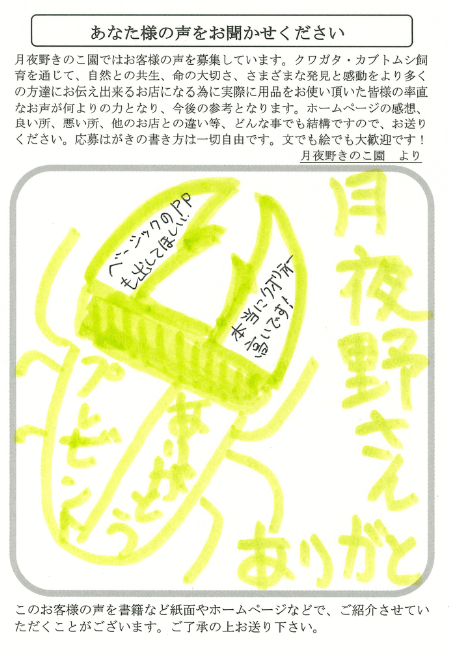 あなた様の声をお聞かせください
月夜野きのこ園ではお客様の声を募集しています。クワガタ・カブトムシ飼
育を通じて、自然との共生、命の大切さ、さまざまな発見と感動をより多く
の方達にお伝え出来るお店になる為に実際に用品をお使い頂いた皆様の率直
なお声が何よりの力となり、今後の参考となります。ホームページの感想、
良い所、悪い所、他のお店との違い等、どんな事でも結構ですので、お送り
ください。応募はがきの書き方は一切自由です。文でも絵でも大歓迎です！
月夜野きのこ園　より
月夜野さん
ありがと
ベーシックのPP
も出してほしい!
本当にクオリティー
高いです!
プレゼント
ありがとう
このお客様の声を書籍など紙面やホームページなどで、ご紹介させてい
ただくことがございます。ご了承の上お送り下さい。